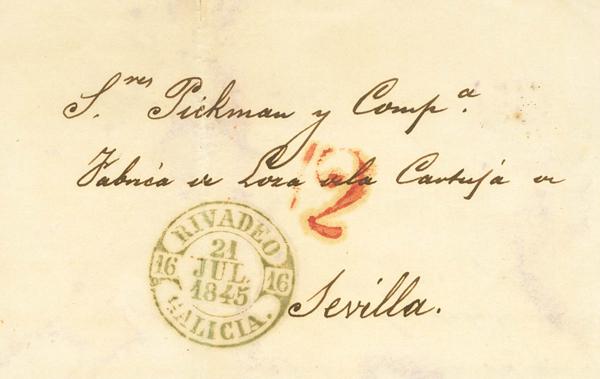 S.res Pickman y Comp.a
Fabrica de Loza dela Cartuja de
12
Sevilla.
RIVADEO
21
JUL.
1845
16 16
GALICIA.